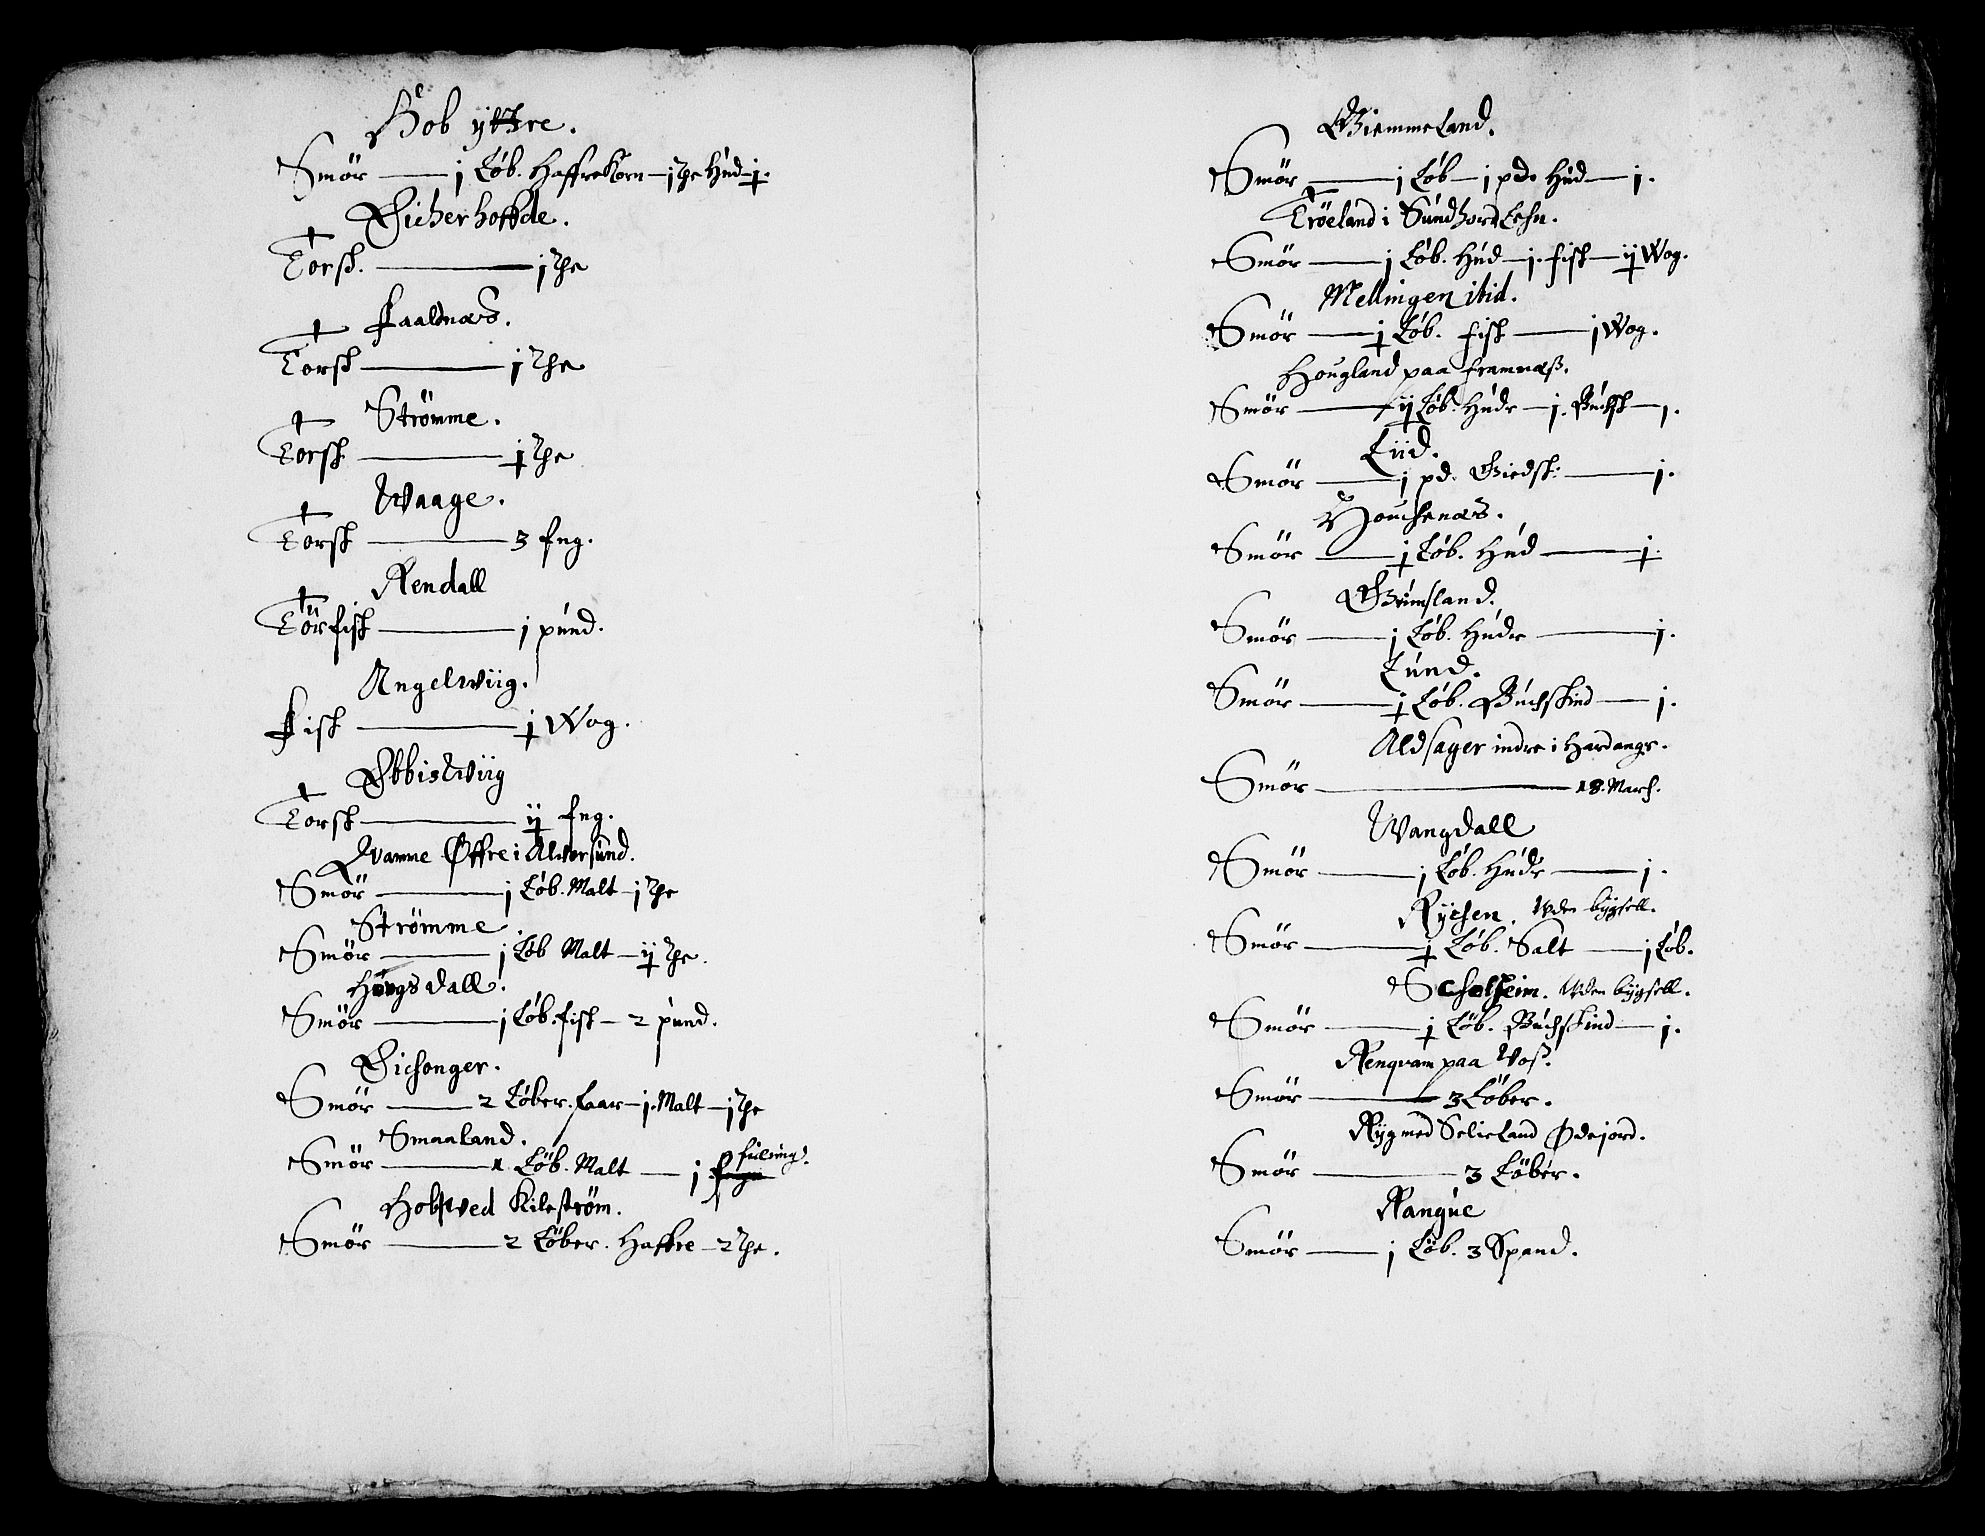 Bob yttre.
Smör — j Löb. Haffrekorn — j thr Hud ɉ.
Eicherhoffde.
Torsk. — j thr
Faalnæs.
Torsk — j thr
Strömme.
Torsk — ɉ thr
Waage.
Torsk — 3 fng.
Rendall
Törfisk — j pund.
Angelwiig.
Fisk — ɉ Wog.
Ebbiswiig
Torsk — ij fng.
Qvamme Øffre i Alversund.
Smör — j Löb. Malt — j thr
Strömme
Smör — j Löb Malt — ij thr.
Hougsdall.
Smör — j Löb. fisk — 2 pund.
Eichonger.
Smör — 2 Löber. faar — j. Malt — j thr
Smaaland.
Smör — 1 Löb. Malt — j fuling.
Hobfved Kilström.
Smör — 2 Löber. Haffre — 2 thr.
Giemmeland.
Smör — j Löb — j pd. Hud — j.
Tröeland i Sundhordlehn.
Smör — j Löb. Hud — j. fisk — ij Wog.
Mellingen ibid.
Smör — ɉ Löb. fisk — j Wog.
Hougland paa framnæß.
Smör — ij Löb. Hudr — j. Buchsk — j.
Liid.
Smör — j pd. Giedsk: — j.
Houchenæs.
Smör — ɉ Löb. Hud — ɉ.
Grimsland.
Smör — j Löb. Hudr — j.
Lund.
Smör — ɉ Löb. Buchskind — j.
Aldsager indre i Hardangr.
Smör — 18. March.
Wangdall
Smör — j Löb. Hudr — j.
Rychen. Uden bygsell.
Smör — ɉ Löb. Salt — j Löb.
Scholheim. Uden bygsell.
Smör — ɉ Löb. Buchskind — j.
Renqvam paa Voß.
Smör — 3 Löber.
Ryg med Selieland Ødejord.
Smör — 3 Löber.
Rangue
Smör — j Löb. 3 Spand.